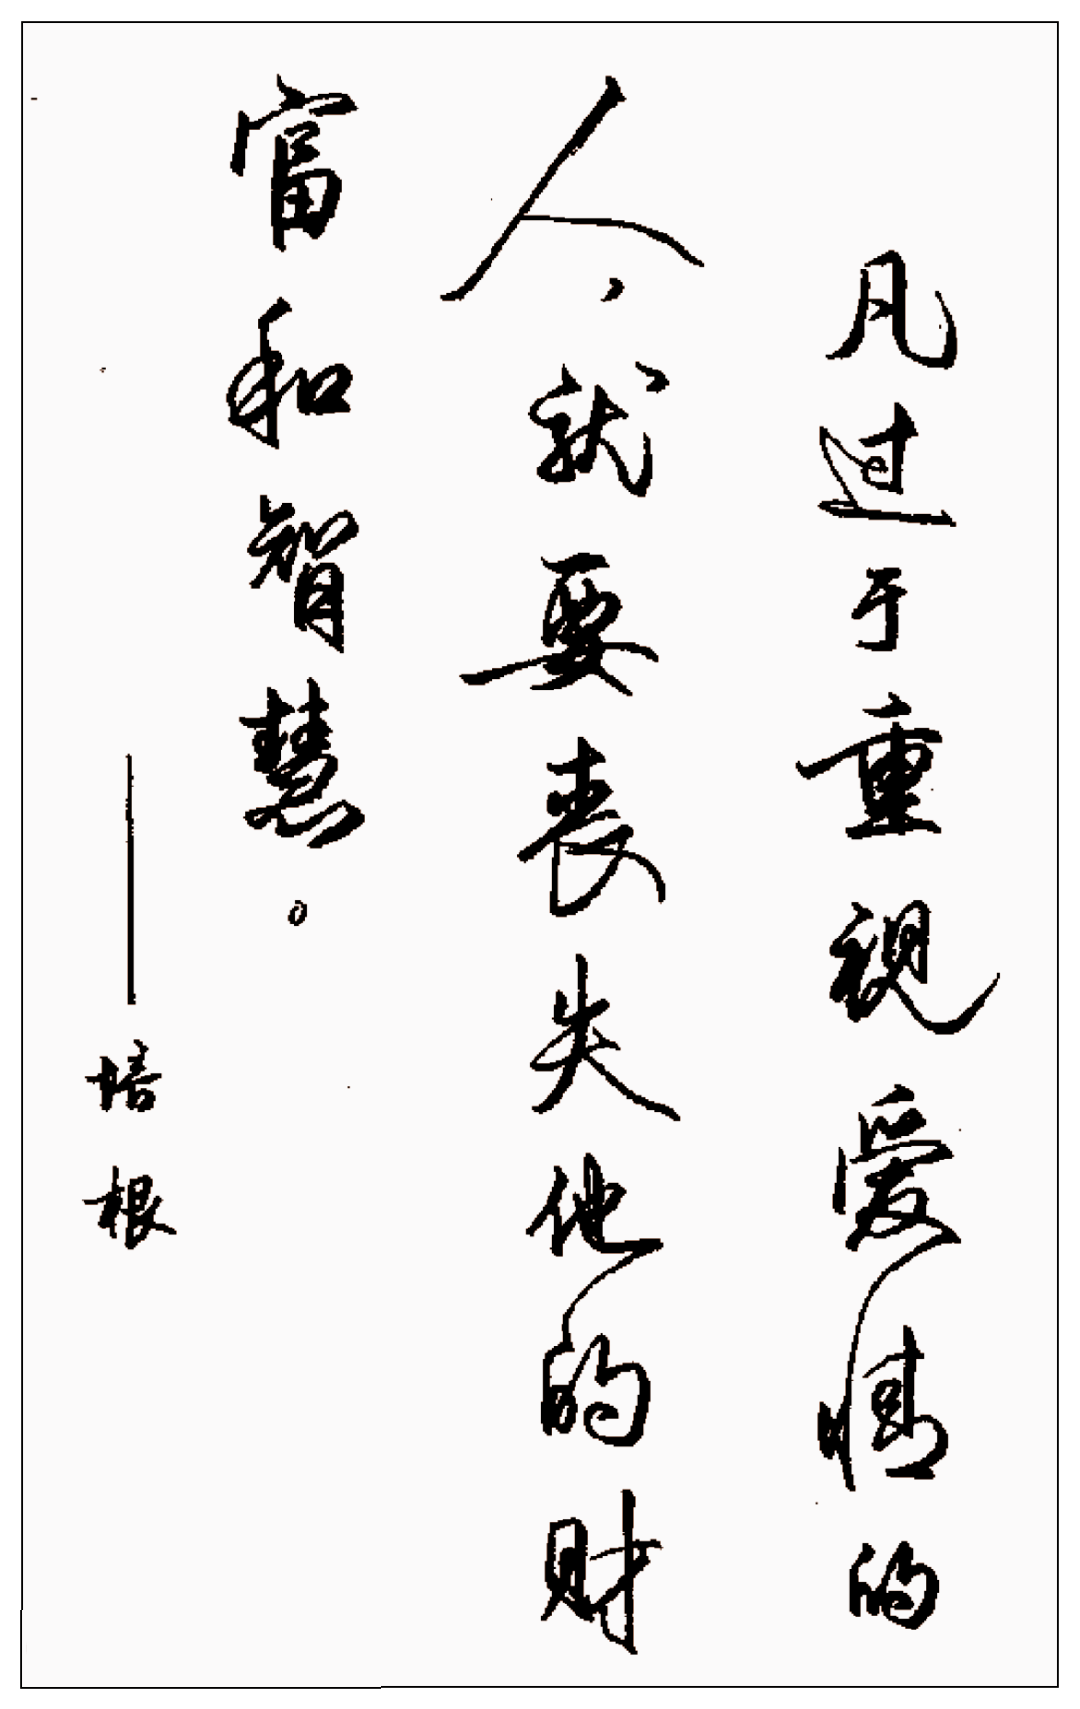 凡过于重视爱情的
人，就要丧失他的财
富和智慧。
——培根